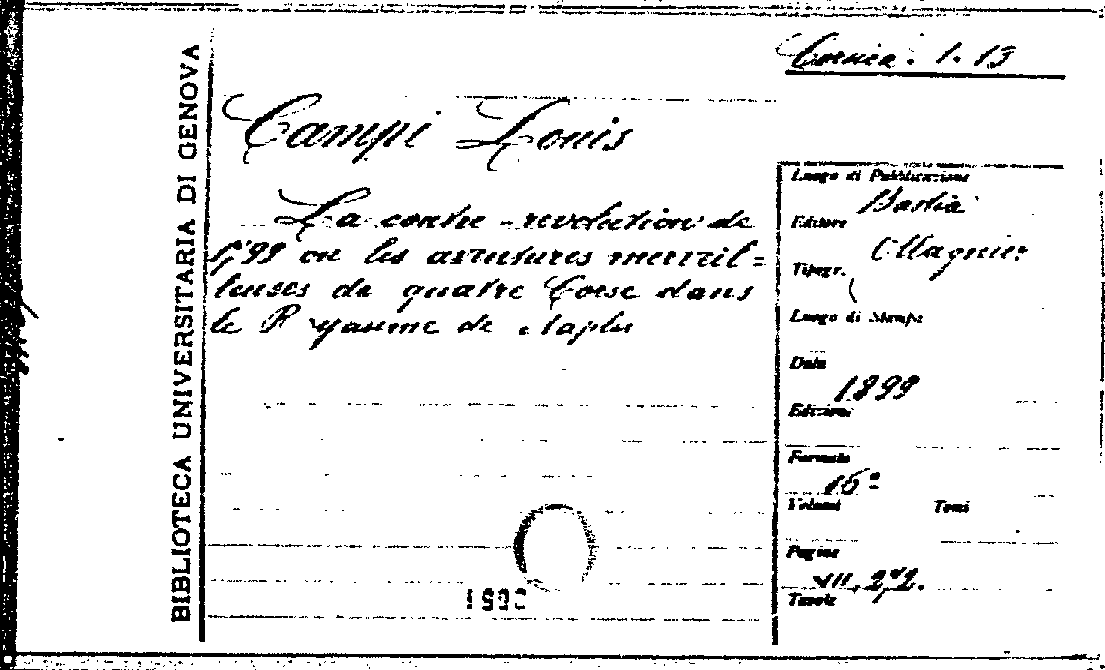 Corsica. 1. 13
BIBLIOTECA UNIVERSITARIA DI GENOVA
Campi Louis
La contre-revolution de
1799 ou les aventures merveil=
leuses de quatre Corse dans
le Royaume de Naples
Luogo di Pubblicazione
Bastia
Editore
Ollagnier
Tipogr.
Luogo di Stampa
Data
1899
Edizioni
Formato
16°
Volumi Tomi
Pagine
VII,
Tavole